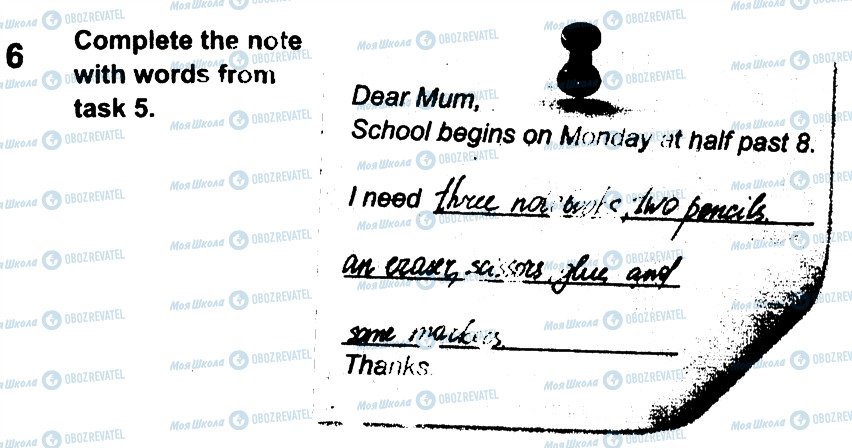 6
Complete the note
with words from
task 5.
Dear Mum,
School begins on Monday at half past 8.
I need three notebooks, two pencils,
an eraser, scissors, glue and
some markers.
Thanks.
МояШкола OBOZREVATEL